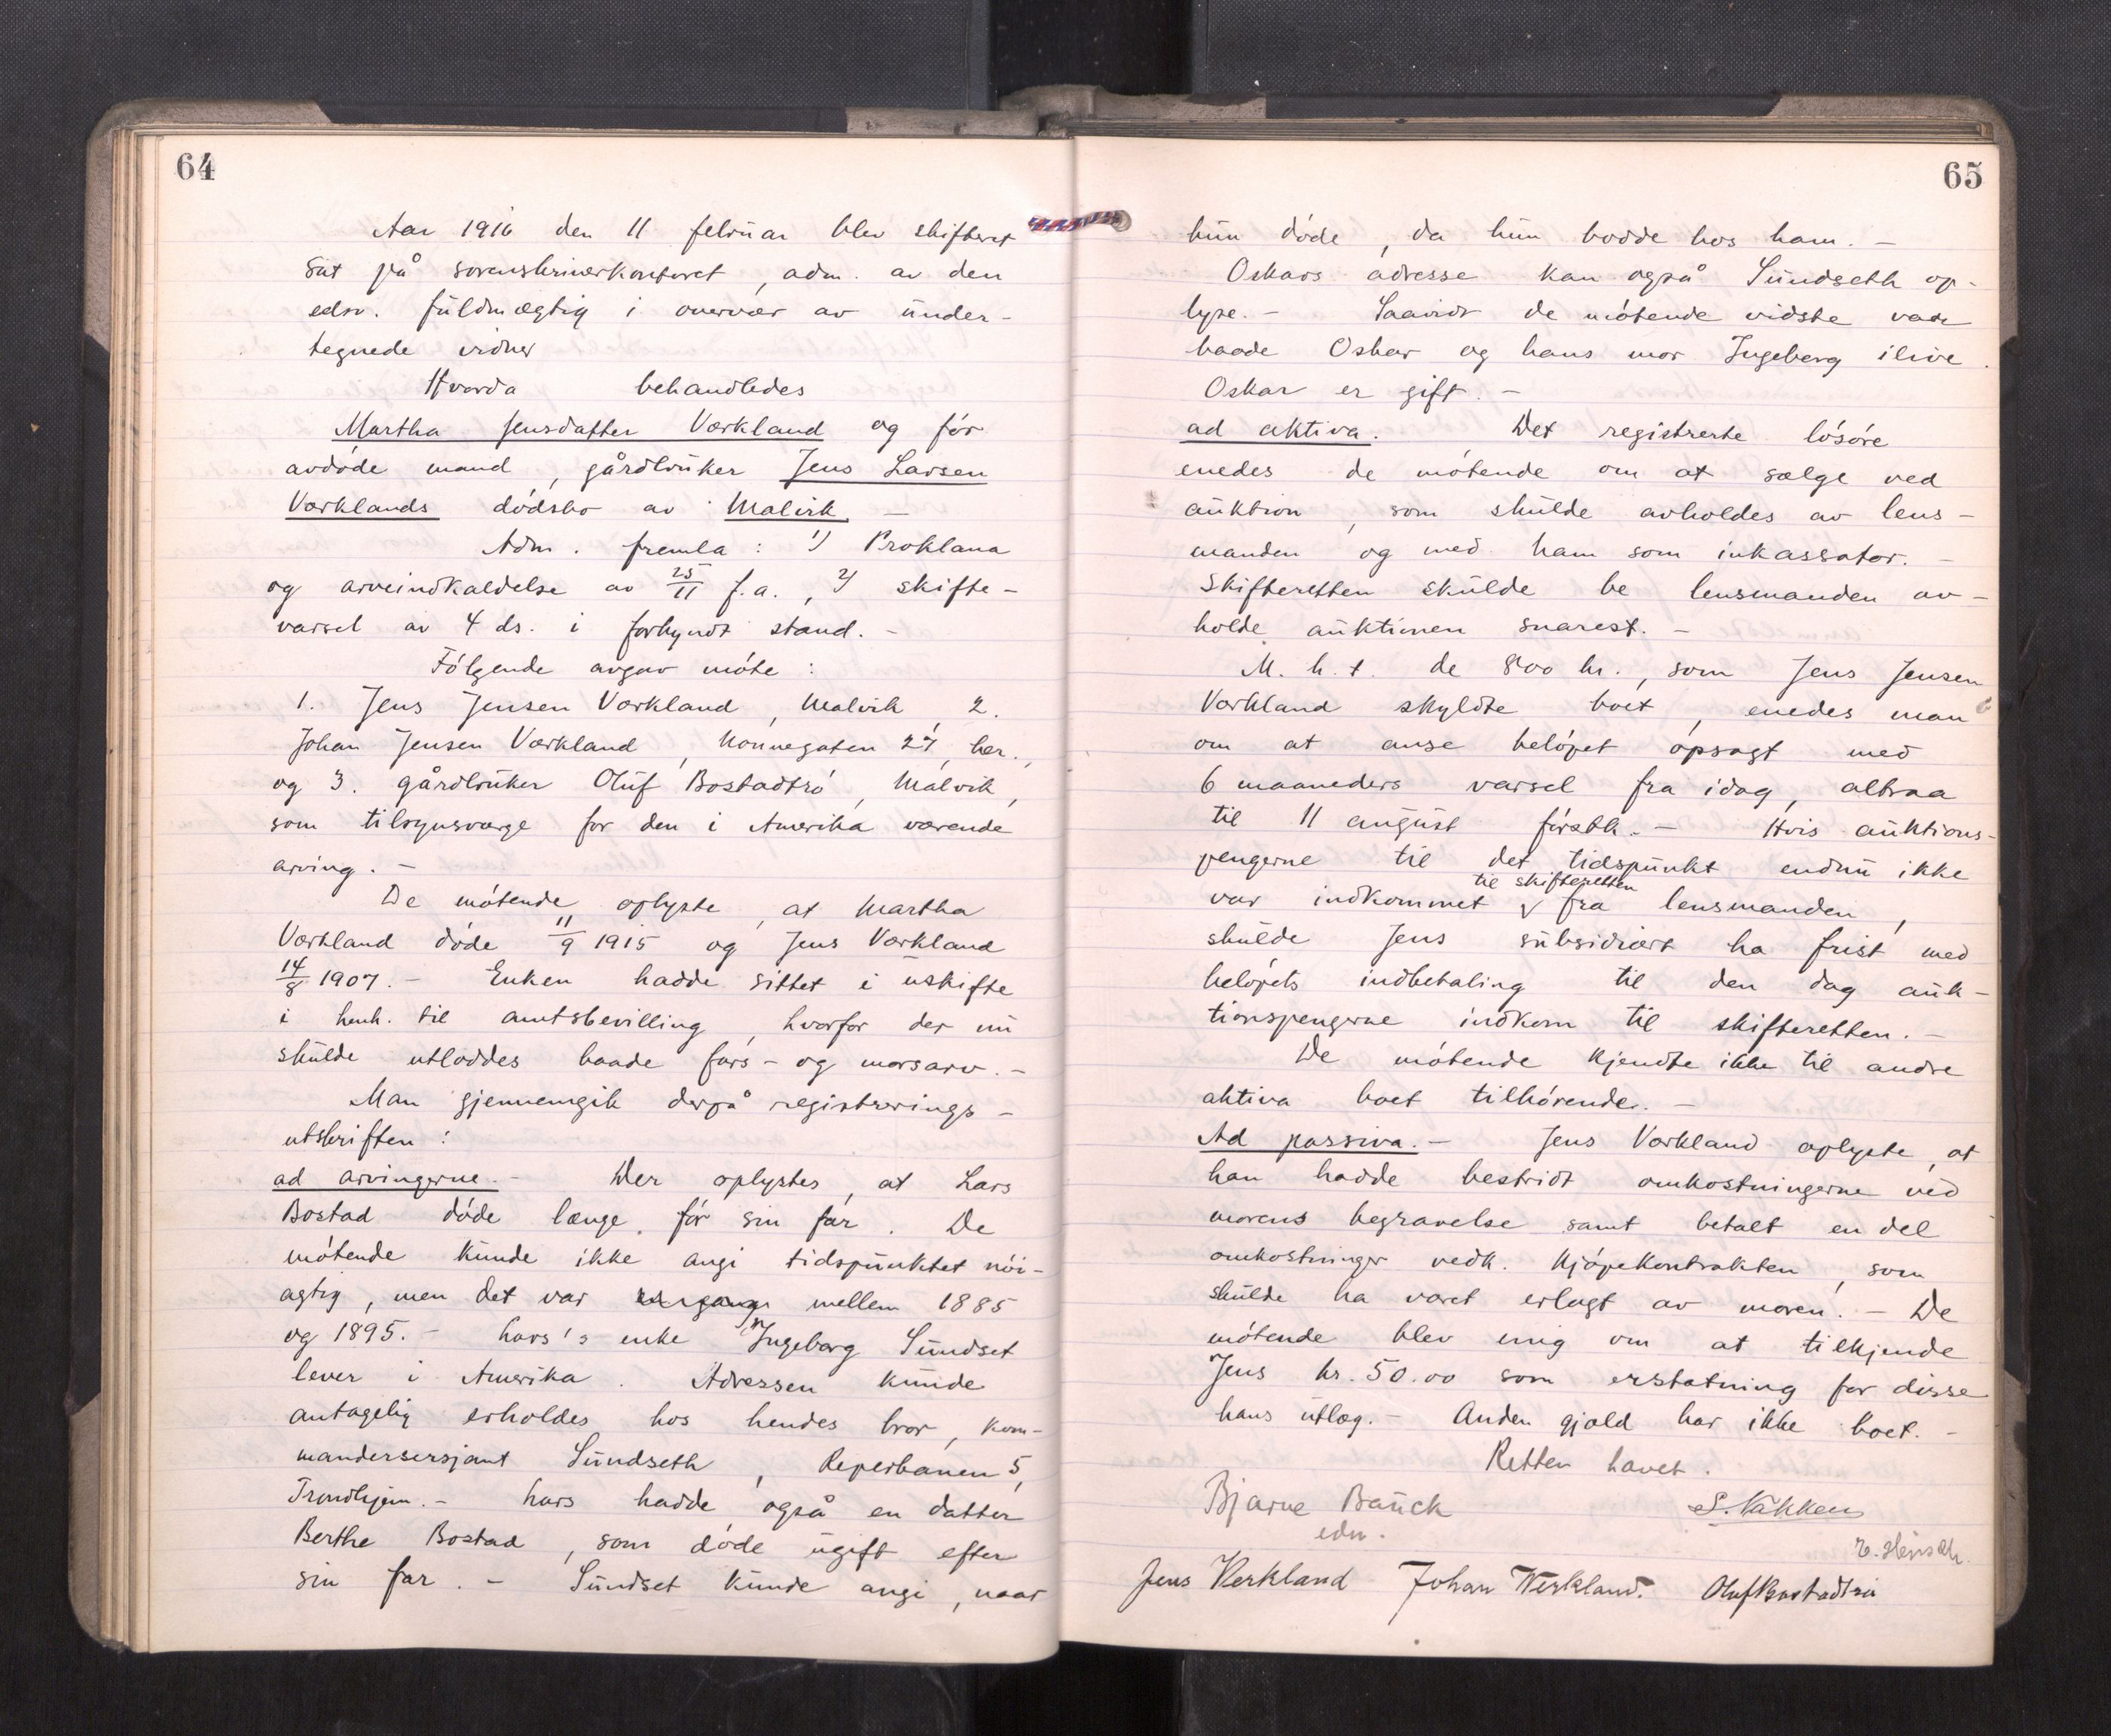 64
Aar 1916 den 11 februar blev skifteret
sat på sorenskriverkontoret, adm. av den
edsv. fuldmægtig i overvær av under-
tegnede vidner
Hvorda behandledes
Martha Jensdatter Værkland og før
avdøde mand, gårdbruker Jens Larsen
Værklands dødsbo av Malvik. –
Adm. fremla: 1) Proklama
og arveindkaldelse av 25/11 f.a., 2) skifte-
varsel av 4 ds. i forkyndt stand. –
Følgende avgav møte:
1. Jens Jensen Værkland, Malvik, 2.
Johan Jensen Værkland, Nonnegaten 27, her.,
og 3. gårdbruker Oluf Bostadtrø, Malvik,
som tilsynsværge for den i Amerika værende
arving. –
De møtende oplyste, at Martha
Værkland døde 11/9 1915 og Jens Værkland
14/8 1907. – Enken hadde sittet i uskifte
i henh. til amtsbevilling, hvorfor der nu
skulde utloddes baade fars- og morsarv. –
Man gjennemgik derpå registrerings-
utskriften:
ad arvingerne. – Der oplystes, at Lars
Bostad døde længe før sin far. De
møtende kunde ikke angi tidspunktet nøi-
agtig, men det var mellem 1885
og 1895. – Lars's enke Ingeborg Sundset
lever i Amerika. Adressen kunde
antagelig erholdes hos hendes bror, kom-
mandersersjant Sundseth, Reperbanen 5,
Trondhjem. – Lars hadde også en datter
Berthe Bostad, som døde ugift efter
sin far. – Sundset kunde angi, naar
65
hun døde, da hun bodde hos ham. –
Oskars adresse kan også Sundseth op-
lyse. – Saavidt de møtende vidste var
baade Oskar og hans mor Ingeberg ilive.
Oskar er gift. –
ad aktiva. Det registrerte løsøre
enedes de møtende om at sælge ved
auktion, som skulde avholdes av lens-
manden og med ham som inkassator. –
Skifteretten skulde be lensmanden av-
holde auktionen snarest. –
M. h. t. de 800 kr., som Jens Jensen
Værkland skyldte boet, enedes man
om at anse beløpet opsagt med
6 maaneders varsel fra idag, altsaa
til 11 august førstk. – Hvis auktions-
pengerne til det tidspunkt endnu ikke
til skifteretten
var indkommet fra lensmanden,
skulde Jens subsidiært ha frist med
beløpets indbetaling til den dag auk-
tionspengerne indkom til skifteretten. –
De møtende kjendte ikke til andre
aktiva boet tilhørende. –
Ad passiva. – Jens Værkland oplyste, at
han hadde bestridt omkostningerne ved
morens begravelse samt betalt en del
omkostninger vedk. kjøpekontrakten, som
skulde ha været erlagt av moren. – De
møtende blev enig om at tilkjende
Jens kr. 50.00 som erstatning for disse
hans utlæg. – Anden gjæld har ikke boet. –
Retten hævet.
Bjarne Bauck S. Nakken
edsv.
Jens Verkland Johan Verkland. Oluf Bostadtrø